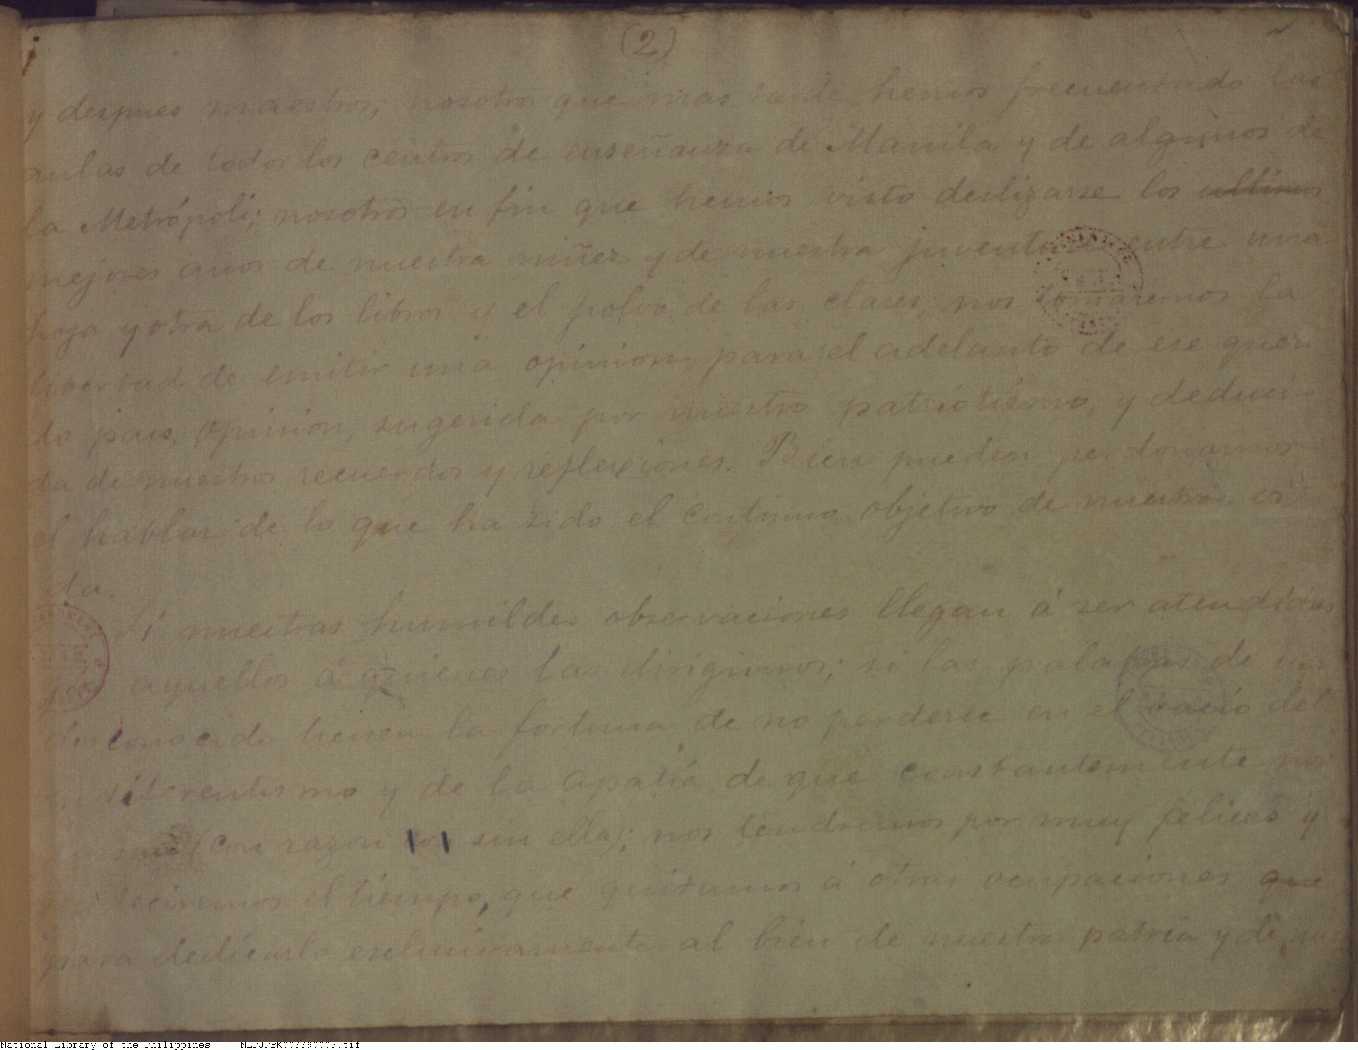 (2)
y despues maestros; nosotros que mas tarde hemos frecuentado las
aulas de todos los centros de enseñanza de Manila y de algunos de
la Metrópoli; nosotros en fin que hemos visto deslizarse los ultimos
mejores años de nuestra niñez y de nuestra juventud entre una
hoja y otra de los libros y el polvo de las clases, nos tomaremos la
libertad de emitir una opinion para el adelanto de ese queri
do pais, opinion, sugerida por nuestro patriotismo, y deduci
da de nuestros recuerdos y reflexiones. Bien pueden perdonarnos
el hablar de lo que ha sido el continuo objetivo de nuestra vi
da.
Si nuestras humildes observaciones llegan á ser atendidas
por aquellos á quienes las dirigimos; si las palabras de un
desconocido tienen la fortuna de no perderse en el vacio del
indiferentismo y de la apatía de que constantemente nos
(con razon ó sin ella); nos tendremos por muy felices y
bendeciremos el tiempo, que quitamos á otras ocupaciones que
para dedicarlo exclusivamente al bien de nuestra patria y de
National Library of the Philippines